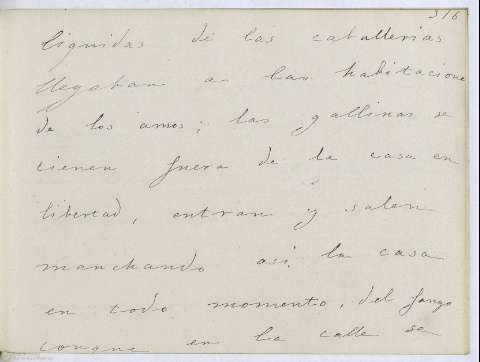 316
liquidas de las caballerias
llegaban a las habitacione
de los amos; las gallinas se
tienen fuera de la casa en
libertad, entran y salen
manchando asi la casa
en todo momento, del fango
conque en la calle se